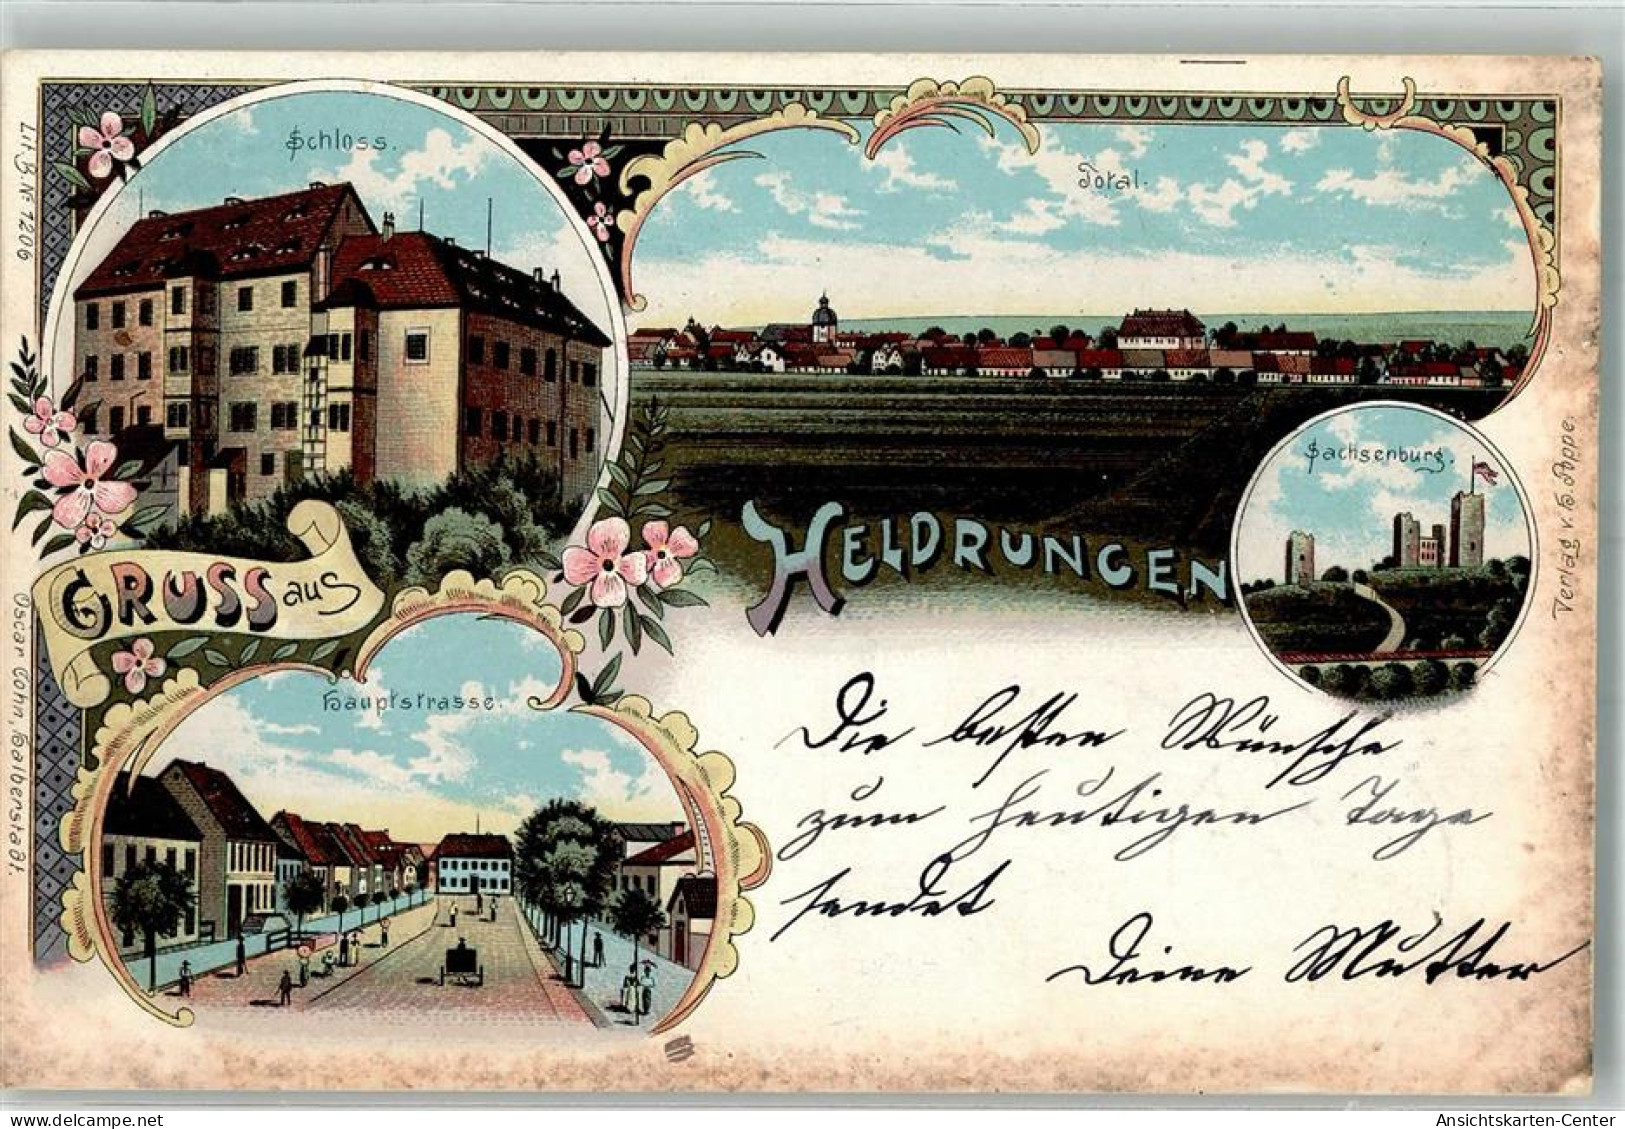 Schloss.
Total.
Sachsenburg.
GRUSS aus
HELDRUNGEN
Hauptstrasse.
Die besten Wünsche
zum heutigen Tage
sendet
Deine Mutter
Lit. B. No. 1206
Oscar Cohn, Halberstadt.
Ansichtskarten-Center